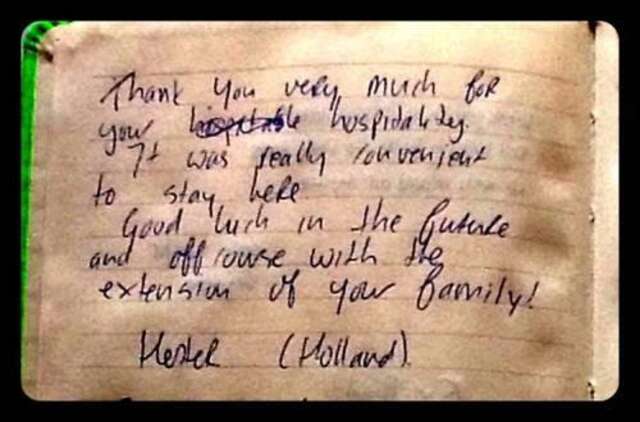 Thank you very much for
your hospitality.
It was really convenient
to stay here
Good luck in the future
and off course with the
extension of your family!
Hester (Holland)